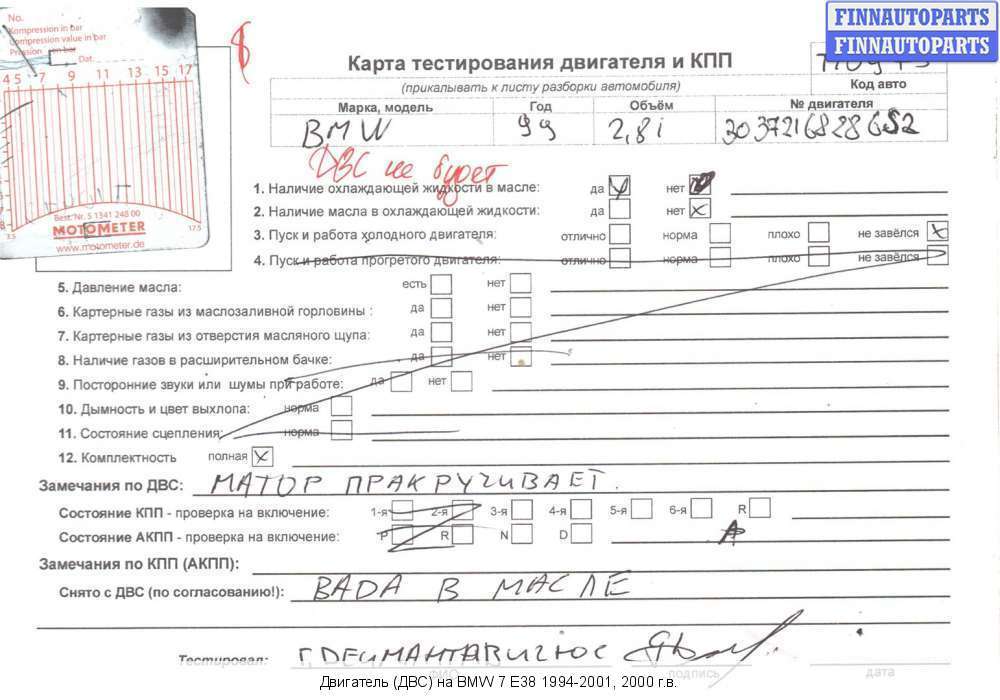 No.
Kompression in bar
Compression value in bar
Pression en bar
Dat.
4 5 7 9 11 13 15 17
Best. Nr. 5 1341 248 00
MOTOMETER
3,5 17,5
www.motometer.de
FINNAUTOPARTS
FINNAUTOPARTS
Карта тестирования двигателя и КПП
(прикалывать к листу разборки автомобиля)
Код авто
Марка, модель Год Объём № двигателя
BMW 99 2,8i 30372168286S2
ДВС не будет
1. Наличие охлаждающей жидкости в масле: да нет
2. Наличие масла в охлаждающей жидкости: да нет
3. Пуск и работа холодного двигателя: отлично норма плохо не завёлся
4. Пуск и работа прогретого двигателя: отлично норма плохо не завёлся
5. Давление масла: есть нет
6. Картерные газы из маслозаливной горловины : да нет
7. Картерные газы из отверстия масляного щупа: да нет
8. Наличие газов в расширительном бачке: да нет
9. Посторонние звуки или шумы при работе: да нет
10. Дымность и цвет выхлопа: норма
11. Состояние сцепления: норма
12. Комплектность полная
Замечания по ДВС: МАТОР ПРАКРУЧИВАЕТ.
Состояние КПП - проверка на включение: 1-я 2-я 3-я 4-я 5-я 6-я R
Состояние АКПП - проверка на включение: P R N D A
Замечания по КПП (АКПП):
Снято с ДВС (по согласованию!): ВАДА В МАСЛЕ
Тестировал:
подпись дата
Двигатель (ДВС) на BMW 7 E38 1994-2001, 2000 г.в.